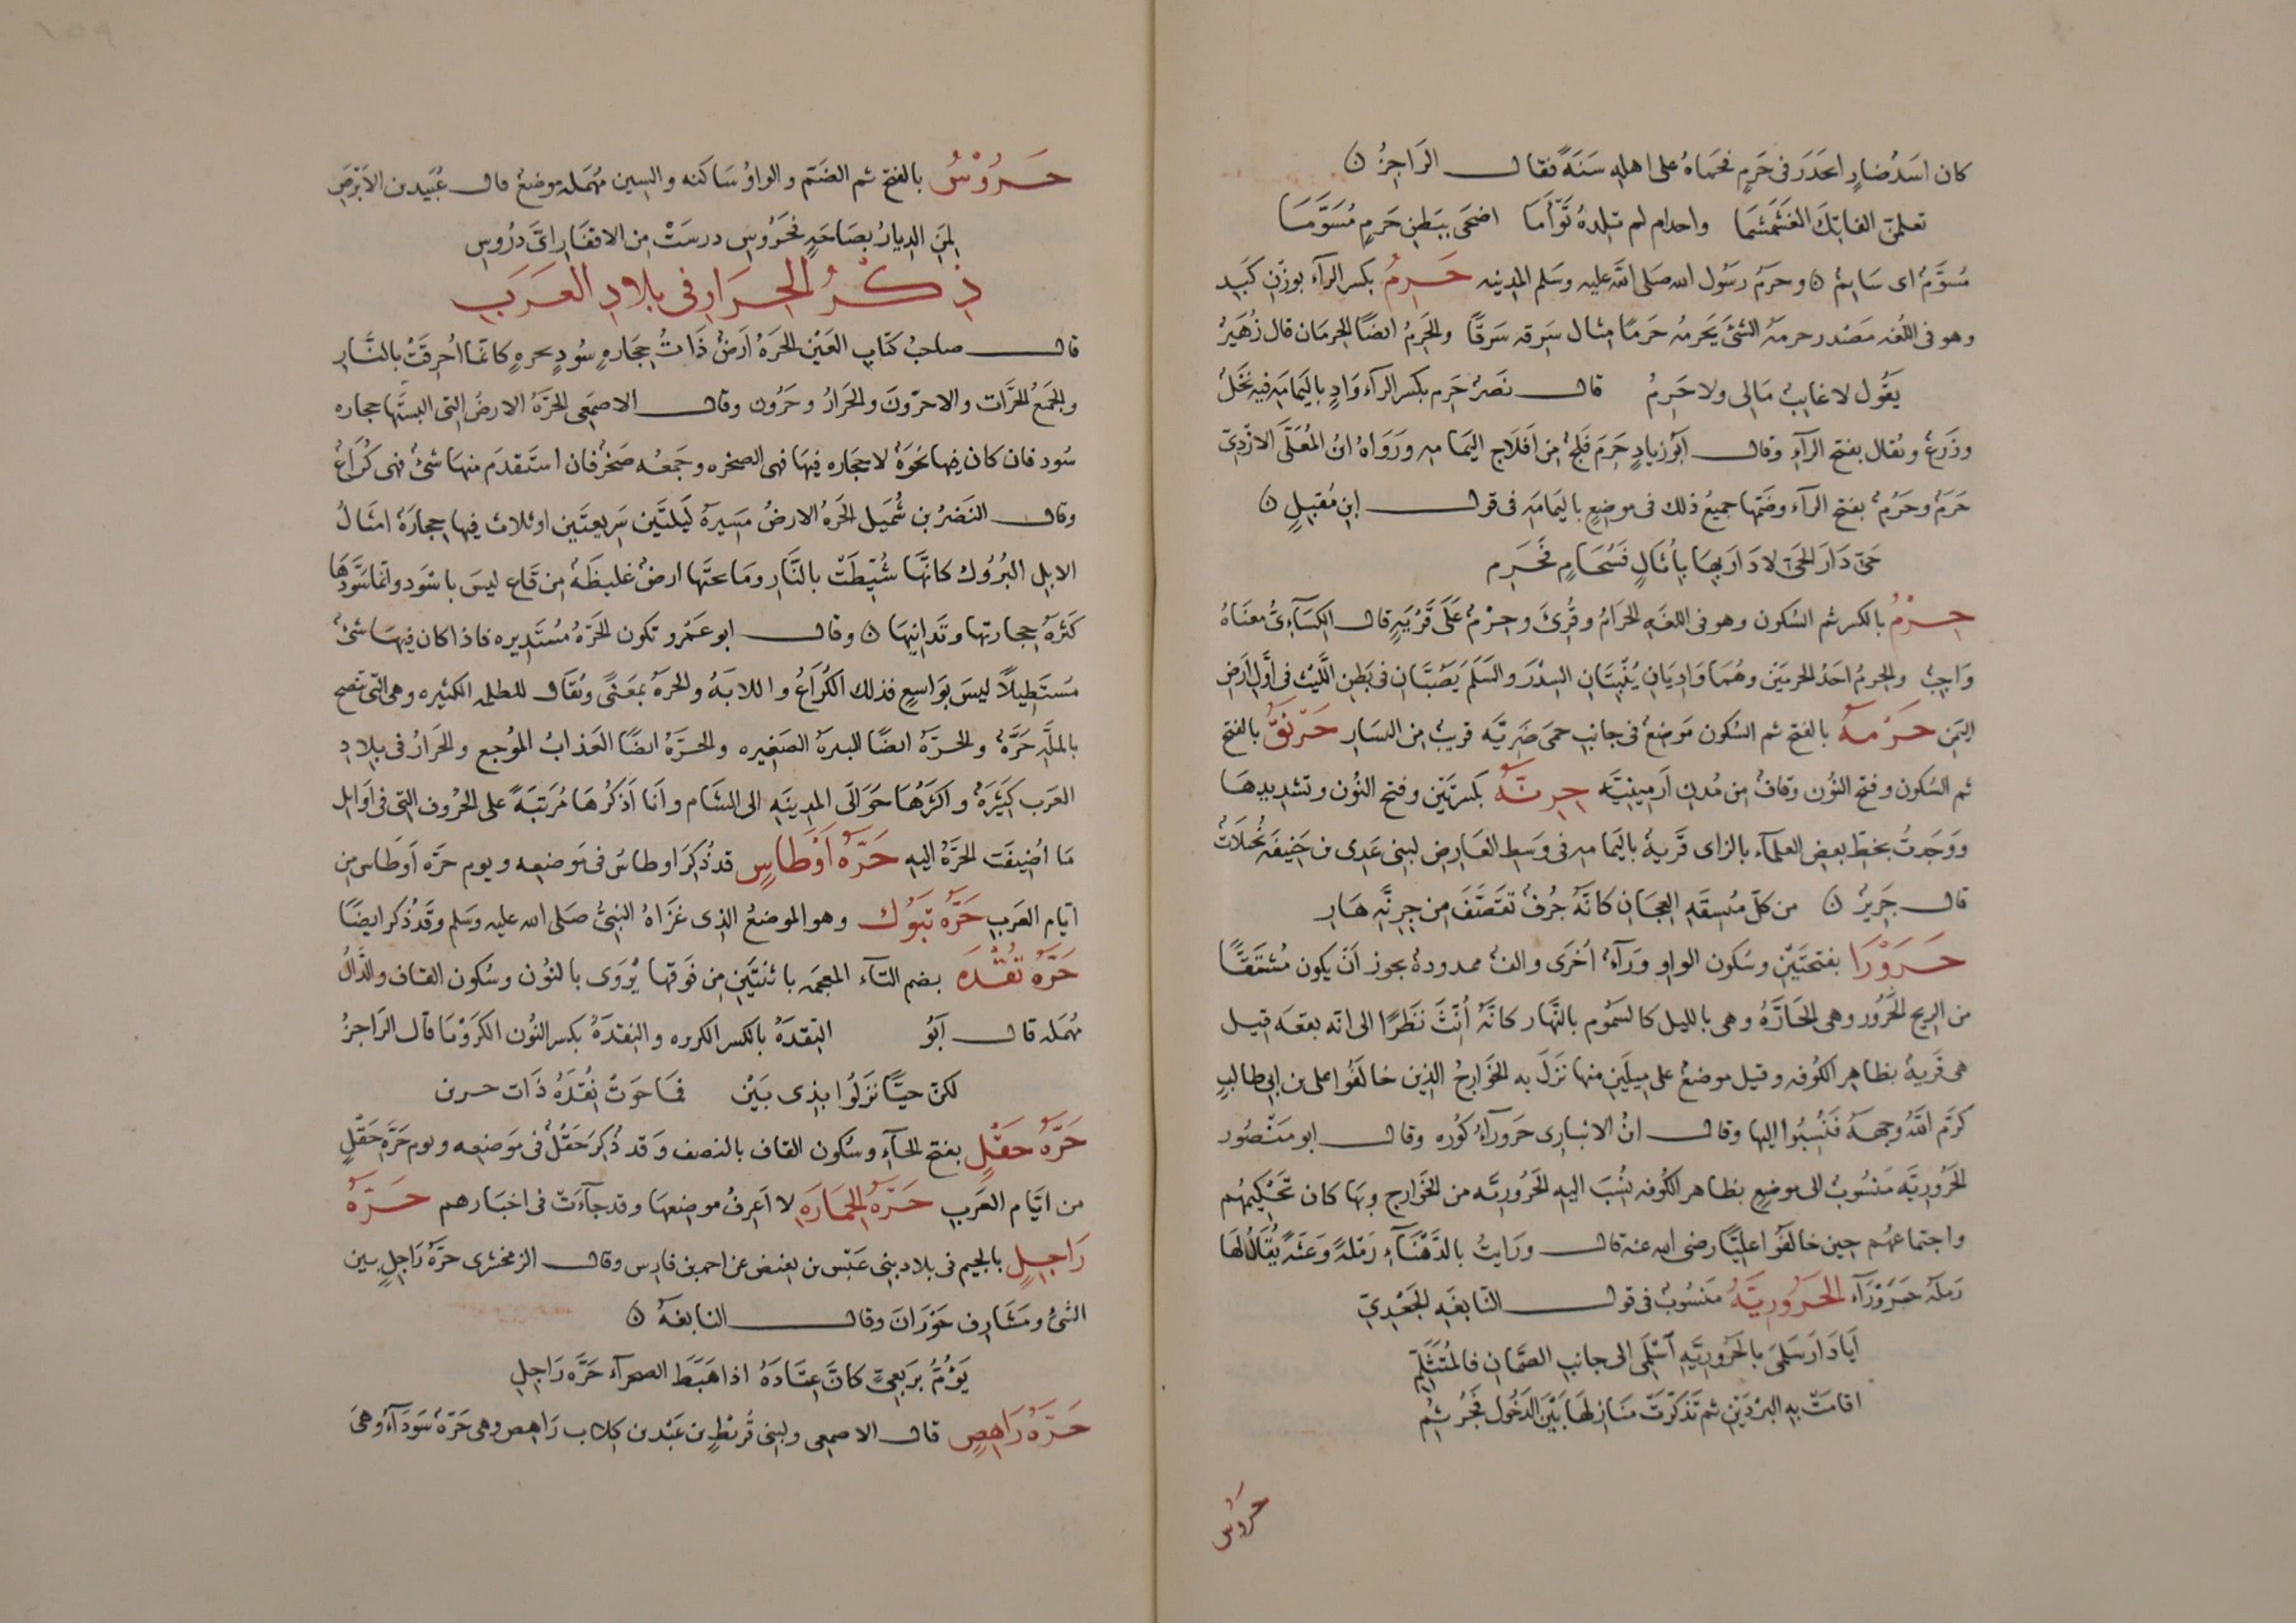 كان اسَدُ ضارٍ انحدَرَ فى حَرمٍ فحَمَاهُ على اهلِه سَنَةً فقال الرَاجِزُ ن
تعلمن الفاتِكَ الغَشَمْشَما واحدام لم تلِدهُ تَوْأَمَا اضحَى بِبَطنِ حَرمٍ مُسَوَّمَا
مُسَوَّمٌ اى سَايمٌ ن وحَرَمُ رسَول الله صَلى الله عليه وسَلم المدينه حَرِمٌ بكسر الرآء بوزن كَبِد
وهو فى اللُغه مَصْدر حرمهُ الشئَ يَحرمه حَرمًا مِثال سَرِقه سَرِقًا والحَرِمُ ايضًا الحِرمان قال زُهَيرٌ
يَقُول لا غايِبٌ مَالِى ولا حَرِمُ قال نَصرٌ حَرِم بكسر الرآء وَادٍ باليَمامَةِ فيه نَخلٌ
وزَرعٌ ويُقال بفتح الرآءِ وقال ابُو زيادٍ حَرِمَ فَلَجٌ مِن اَفلَاجِ اليَمامه ورَوَاهُ ابنُ المُعَلَّى الازْدِىّ
حَرَمٌ وحَرُمٌ بفتح الرآء وضَمّها جميعُ ذلك فى موضِعٍ باليَمامَةِ فى قول ابن مُقبِلٍ ن
حَىّ دَارَ الحَىّ لا دَارَ بها بِأُثَالٍ فَسُخَامٍ فَحَرِم
حِرْمٌ بالكسر ثم السُكون وهو فى اللغةِ الحَرَامُ وقُرِئَ وحِرْمٌ عَلَى قَرْيَةٍ قال الكسَآءِىّ معنَاهُ
وَاجِبٌ والحِرمُ احَدُ الحِرمَين وهُمَا وَادِيَانِ يُنْبِتَانِ السِدْرَ والسَلَم يَصُبَّانِ فى بَطن اللَّيْث فى اَوَّل اَرضِ
اليَمنِ حَرْمَهُ بالفتح ثم السُكون مَوضِعٌ فى جانِبِ حِمَى ضَرِيَّه قريبٌ من النسَار حَرْنَقُ بالفتح
ثم السُكون وفتح النُون وقافٌ مِن مُدن اَرمينِيَّه حِرِنَّهُ بكسرتَين وفتح النُون وتشدِيدِهَا
ووَجَدتُ بخطّ بعضِ العلمآء بالزاى قَريةٌ باليَمامه فى وَسطِ العَارِض لبنِى عَدِى بن حَنِيفَه نَخلَاتٌ
قال جَرِيرٌ ن من كلّ مُبسِقَةِ العِجَانِ كانّهُ جُرفٌ تقصَّفَ من حِرِنَّةِ هَارِ
حَرَوْرَا بفتحتَيْن وسُكون الواو ورَآءٌ اُخرَى والفٌ ممدودةٌ يجوز اَنْ يكون مُشتَقًّا
من الريح الحَرُور وهى الحَارَّهُ وهى بالليل كالسَمُوم بالنَّهار كانّهُ اُنِّثَ نَظَرًا الى انّه بقعه قيل
هى قَريةٌ بظاهِر الكُوفه وقيل موضعٌ على مِيلَين منها نَزَلَ به الخَوَارِجُ الذين خالَفُوا على بن ابى طالبٍ
كرّم اللهُ وجههُ فَنُسِبُوا اليها وقال ابنُ الانبارى حَرَورَآءُ كُوره وقال ابو منْصُور
الحَرُورِيّه مَنسُوبٌ الى موضعٍ بظاهر الكُوفه نُسِبَ اليهِ الحَرُورِيّه من الخَوَارج وبهَا كان تَحْكِيمهُم
واجتماعُهُم حين خالَفُوا علِيًّا رضى الله عنه قال ورَايتُ بالدَّهْنَآءِ رَمْلةً وَعْثَهً يُقَالُ لها
رَملَهُ حَرَوْرَآء الحَرُورِيَّهُ مَنسُوبٌ فى قول النَّابِغَهِ الجَعْدِىّ
اَيَا دَارَ سَلمَى بالحَرُورِيَّهِ اَسْلَمِى الى جانِبِ الصَّمّانِ فالمُتَثَلّمِ
اقامَتْ بِهِ البرْدَينِ ثم تَذَكَّرَتْ مَنَازِلهَا بَيْنَ الدَخُولِ فَجُرثُمِ
حَرُوس
حَرُوْسُ بالفتح ثم الضَمّ والواوُ سَاكنه والسين مُهمَله موضِعٌ قال عُبَيد بن الاَبْرَص
لِمَنِ الدِيارُ بصَاحَةٍ فحَرُوسِ درسَتْ مِن الاِقفَارِ اىَّ دُرُوسِ
ذِكْرُ الحِرَارِ فى بلادِ العَرَبِ
قال صاحِبُ كتابِ العَيْن الحَرهُ اَرضٌ ذَاتُ حِجَارهٍ سُودٍ نخرهٍ كانّما اُحرِقَتْ بالنَّارِ
والجَمْعُ الحَرَّات والاحرّونَ والحِرَارُ وحَرُّون وقال الاصمَعِى الحَرَّهُ الارضُ التى البسَتْها حجاره
سُود فان كان فيها نجْوَهٌ لا حجَاره فيهَا فهى الصخره وجَمْعُه صَخرٌ فان استَقدَم منها شئٌ فهى كُرَاعٌ
وقال النَضرُ بن شُمَيل الحَرهُ الارضُ مَسِيرهُ لَيلتَين سَرِيعتَين او ثلاث فيها حِجارَهٌ امثَالُ
الابل البُرُوك كانَّهَا شُيِّطَتْ بالنَّارِ ومَا تحتَها ارضٌ غليظَهٌ مِن قَاع ليسَ باسْوَد وانّما سَوَّدهَا
كَثرَهُ حِجَارتها وتَدَانِيهَا ن وقال ابو عَمْرو تكون الحَرّهُ مُسْتَدِيره فاذا كان فيهَا شئٌ
مُستَطِيلًا ليسَ بوَاسِعٍ فذلك الكُرَاعُ واللابَهُ والحرهُ بمَعنًى ويُقَال للظلمه الكثيره وهى التى تنضج
بالملَّةِ حَرَّهٌ والحرّهُ ايضًا البثرهُ الصَغِيره والحَرَّهُ ايضًا العَذابُ المُوْجِع والحِرَارُ فى بِلادِ
العَرَب كَثِيرَهٌ واكثرُهَا حَوَالَى المدِينَةِ الى الشام وانا اَذكُرُهَا مُرَتبَهً على الحُرُوف التى فى اَوَايل
مَا اُضِيفَت الحَرَّهُ اليهِ حَرّهُ اَوْطَاسٍ قد ذُكِرَ اوطاسٌ فى موضعه ويوم حَرّهِ اَوطَاسٍ مِن
ايّام العَرَب حَرّهُ تَبُوْك وهو الموضعُ الذِى غَزَاهُ النَبىُّ صَلى الله عليه وسَلم وقَدْ ذُكر ايضًا
حَرّهُ تُقْدَه بضم التآء المعجَمه باثنتَين من فَوقها يُرْوَى بالنُون وسُكون القاف والدَّالُ
مُهمَله قال اَبُو التِقدَهُ بالكسر الكزبره والنِقدَهُ بكسر النُون الكَرَوْيَا قال الرَاجِزُ
لكنّ حَيًّا نَزَلُوا بِذِى بَيْنْ فَمَا حَوَتْ نُقْدَهُ ذَات حرين
حَرّهُ حَقْلٍ بفتح الحآءِ وسُكون القاف بالنصف وقد ذُكِرَ حَقْلٌ فى مَوضعِه ويوم حَرّهِ حَقْلٍ
من ايّام العَرَبِ حَرّهُ الحِمَارَهِ لا اَعرِفُ موضِعهَا وقد جآءَتْ فى اخبَارهم حَرّهُ
رَاجِلٍ بالجيم فى بلاد بنِى عَبْس بن بغيض عن احمد بن فارِس وقال الزمخشرى حَرّهُ رَاجِلٍ بين
السّرّ ومَشَارِف حَوْرَانَ وقال النابغَهُ ن
يَؤُمُّ بِرَبعِىٍّ كانَ عِتَادَهُ اذا هَبَطَ الصحرآءَ حَرّهِ رَاجِلِ
حَرّهُ رَاهِصٍ قال الاصمعى ولبنى قُرَيْطِ بن عَبْد بن كِلاب رَاهِص وهى حَرّهٌ سَودَآءُ وهىَ